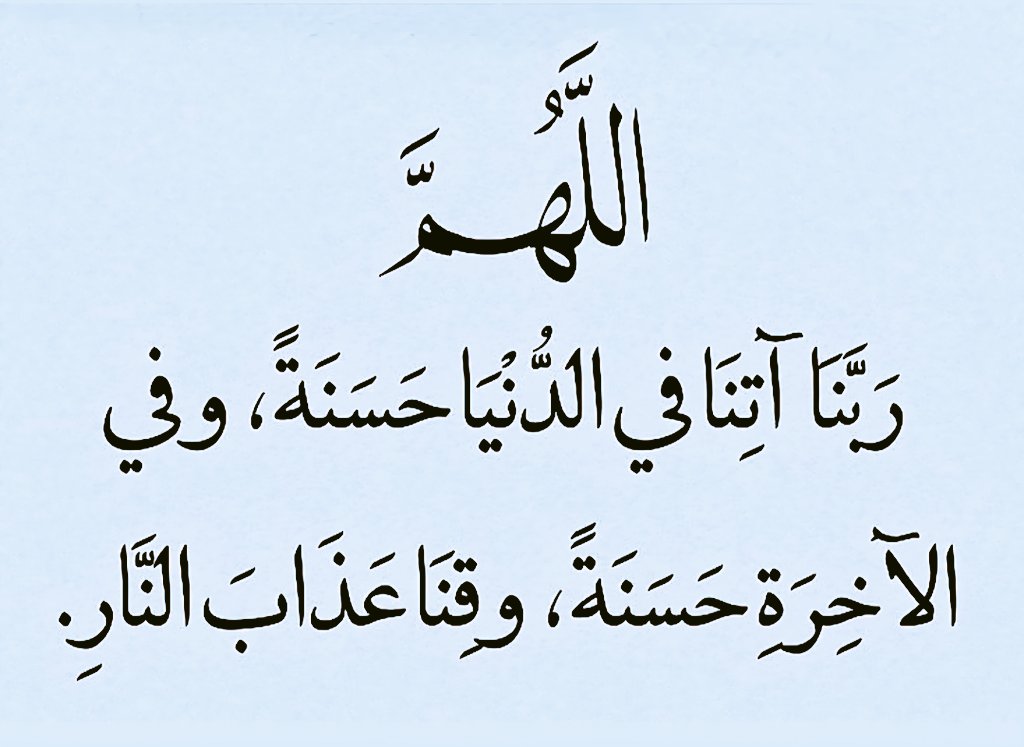 اللَّهُمَّ
رَبَّنَا آتِنَا في الدُّنْيَا حَسَنَةً، وفي
الآخِرَةِ حَسَنَةً، وقِنَا عَذَابَ النَّارِ.